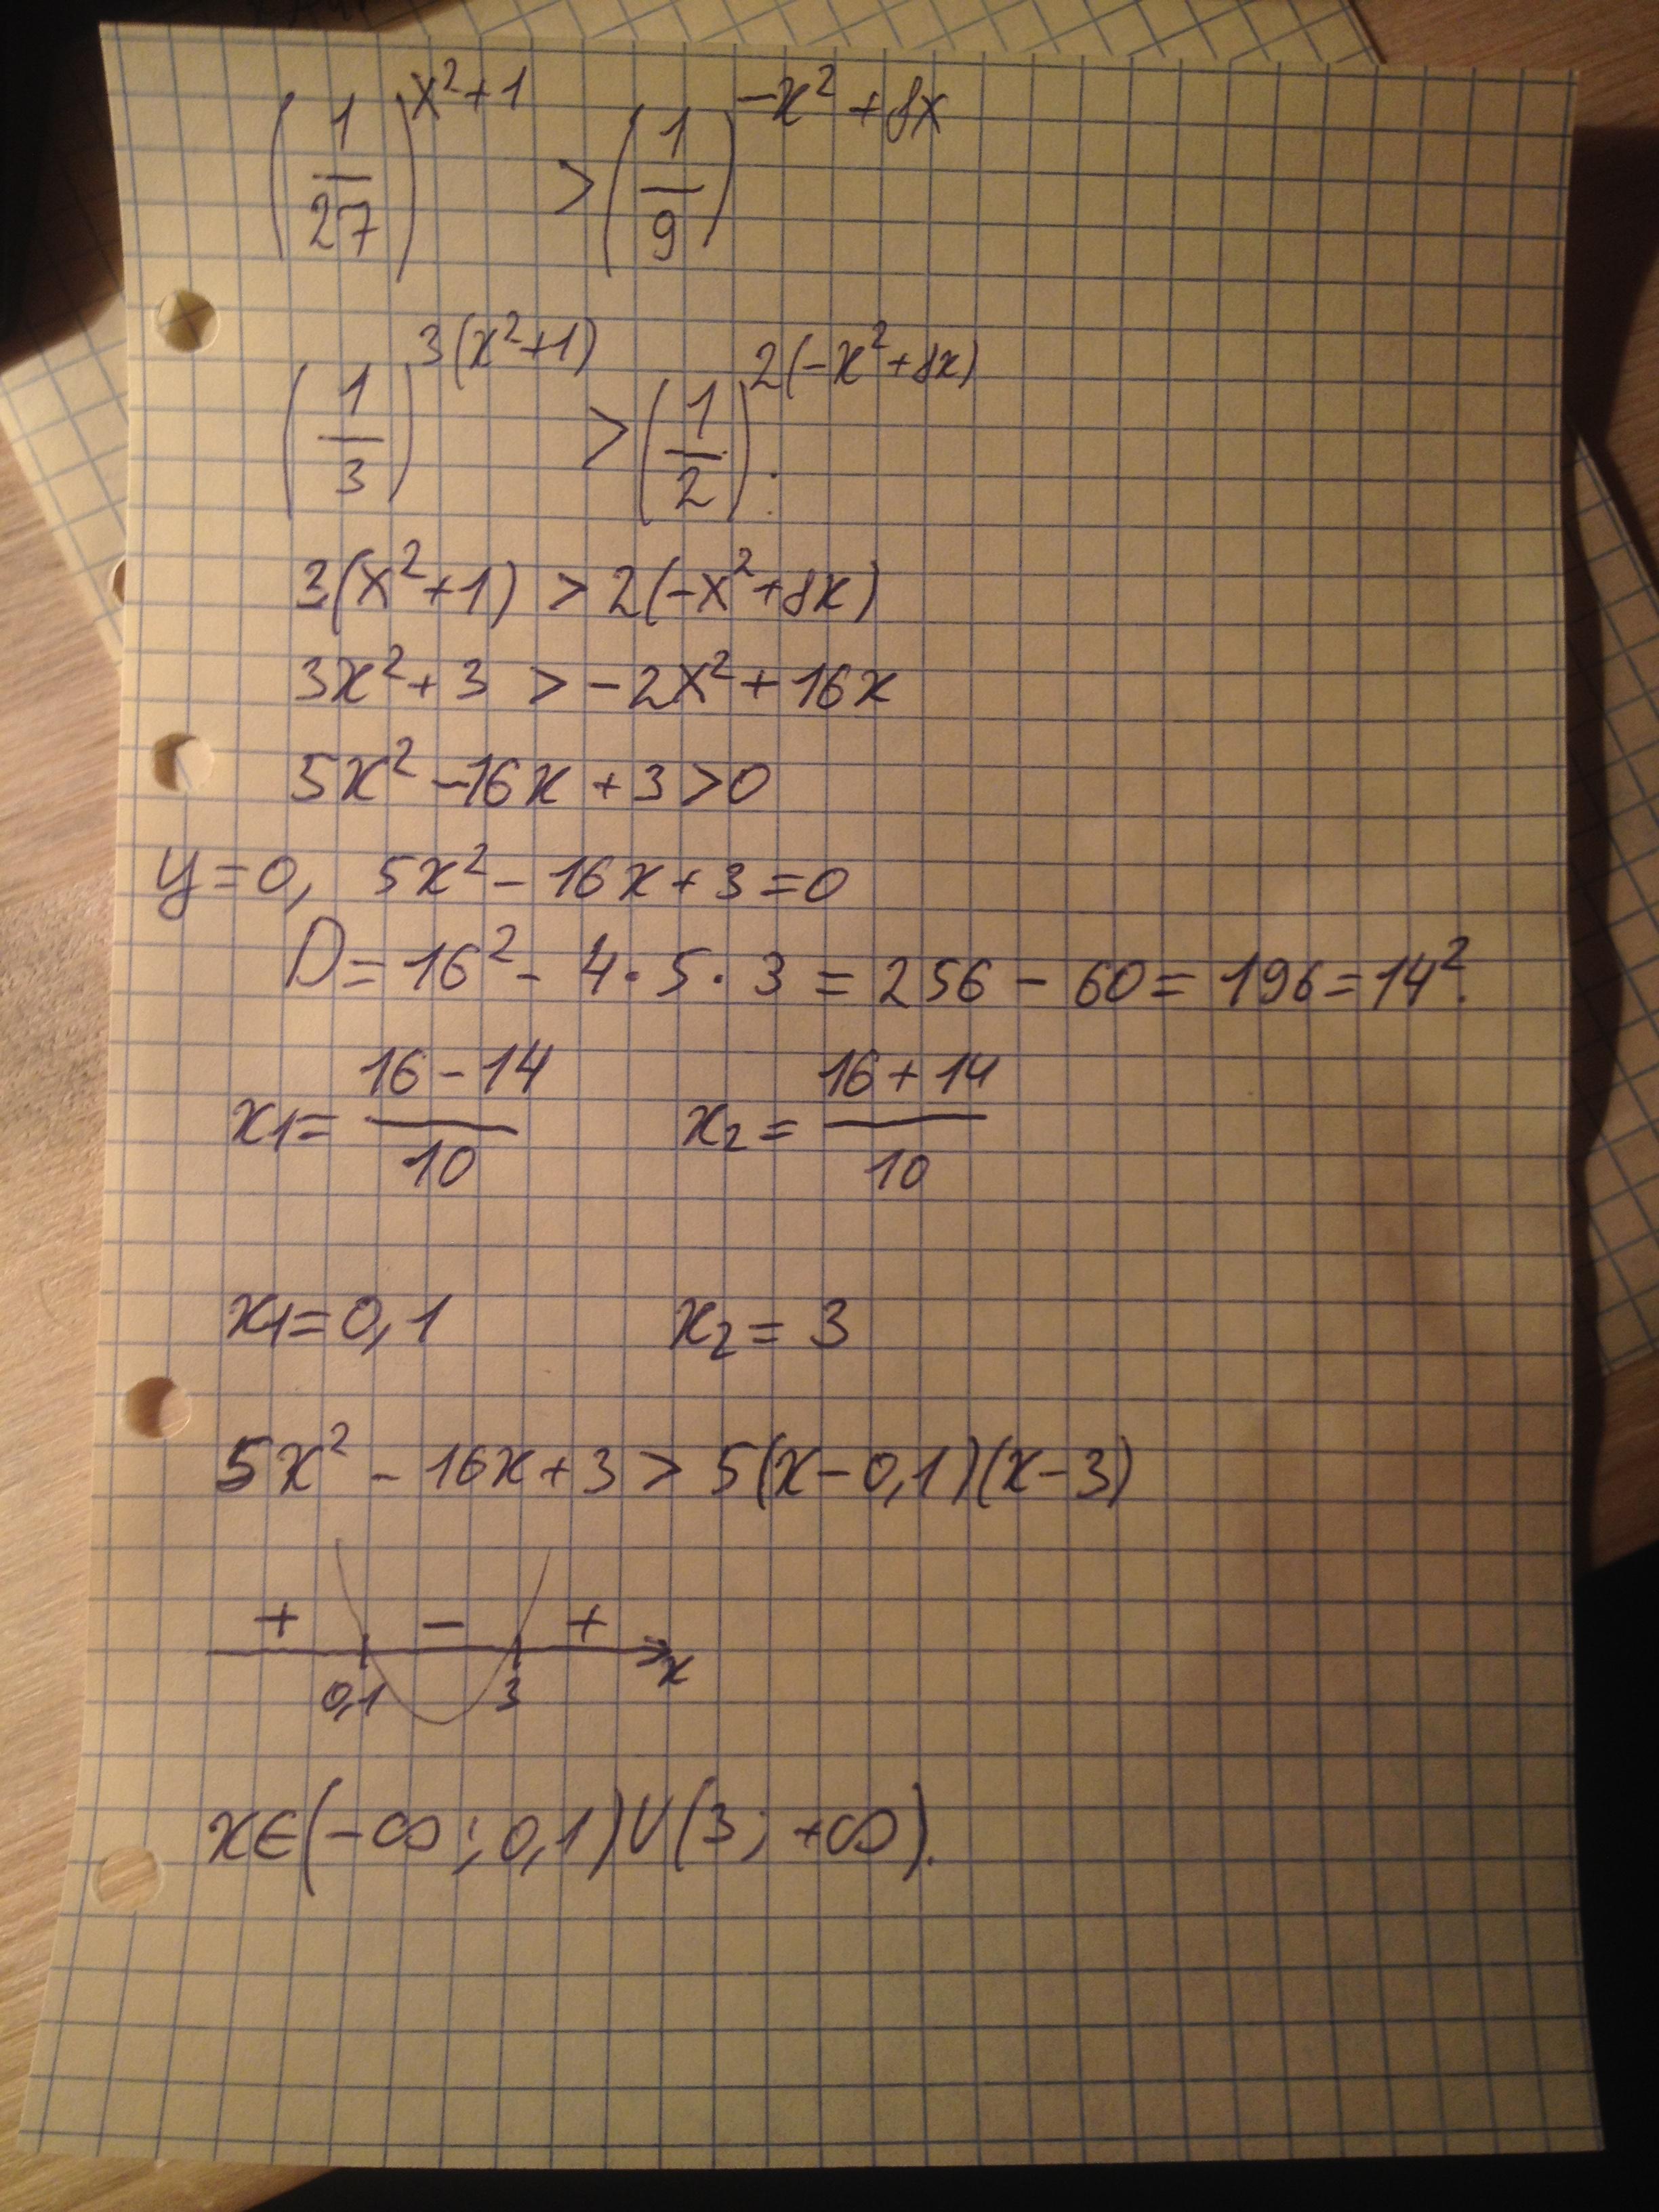 (1/27)^(x²+1) > (1/9)^(-x²+8x)
(1/3)^(3(x²+1)) > (1/2)^(2(-x²+8x)).
3(x²+1) > 2(-x²+8x)
3x²+3 > -2x²+16x
5x²-16x+3>0
y=0, 5x²-16x+3=0
D=16²-4·5·3=256-60=196=14².
x₁=(16-14)/10 x₂=(16+14)/10
x₁=0,1 x₂=3
5x²-16x+3>5(x-0,1)(x-3)
+ - +
0,1 3 x
x∈(-∞;0,1)∪(3;+∞).